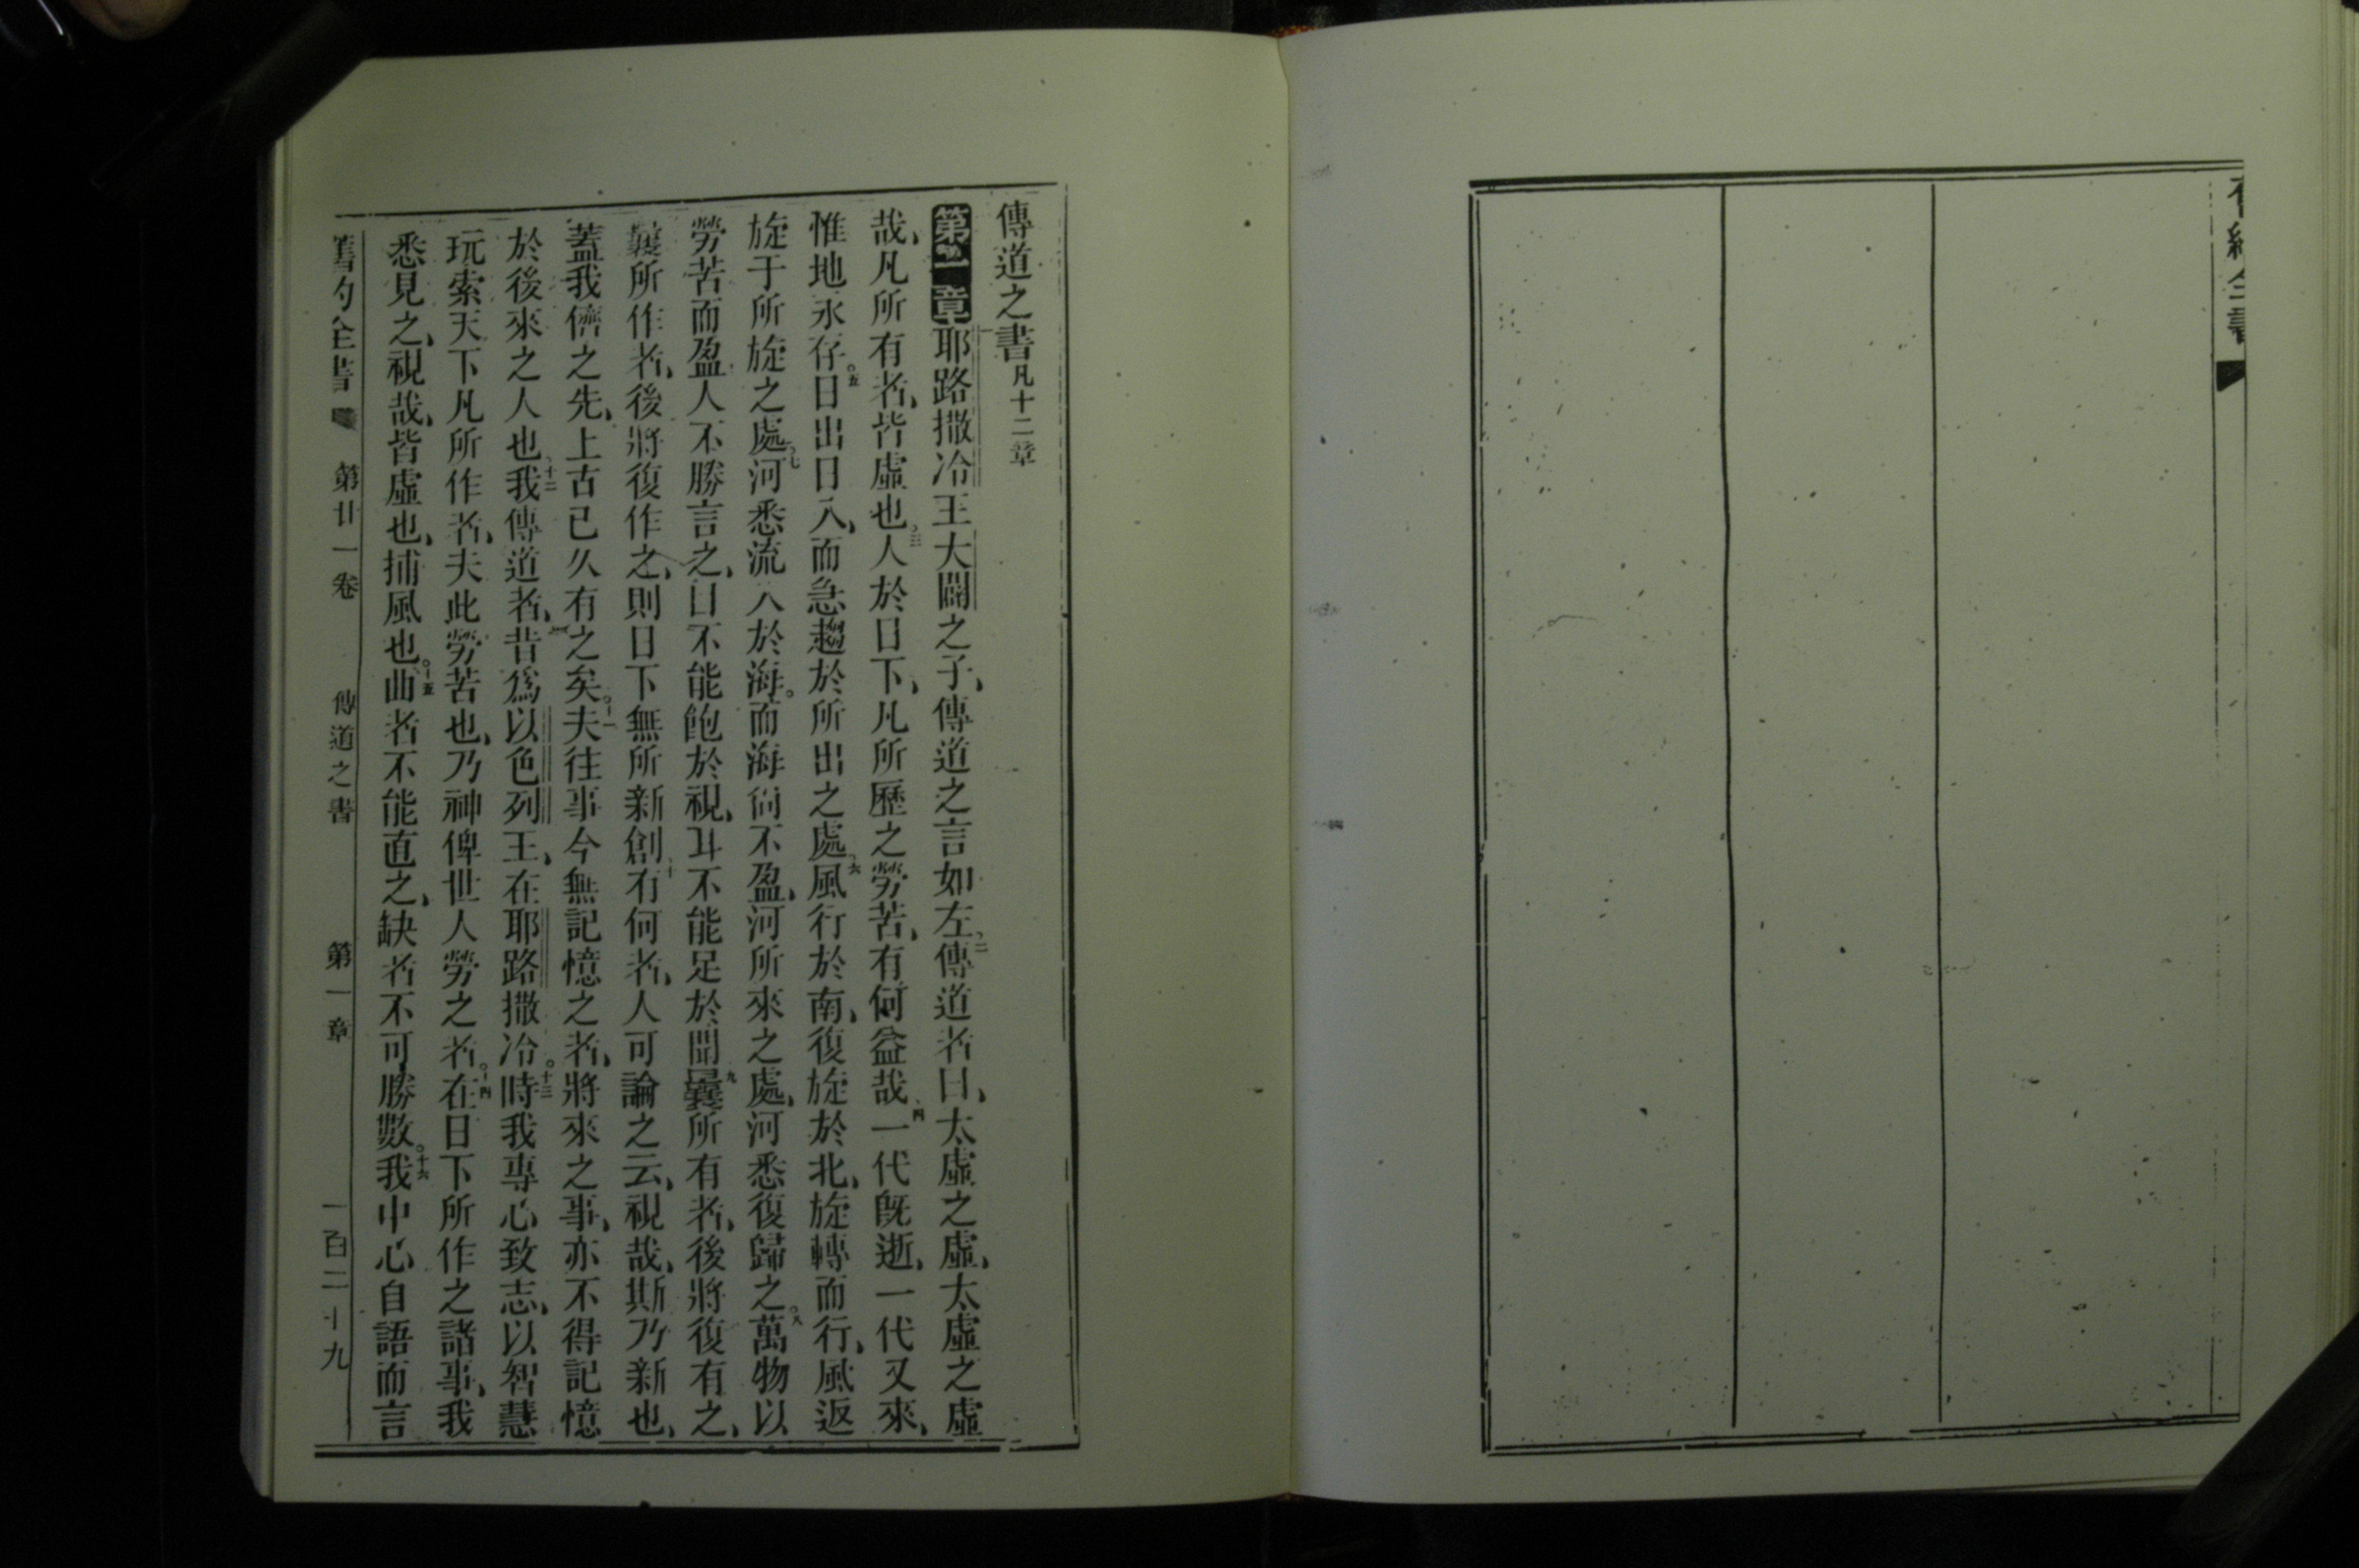 傳道之書凡十二章
第一章一耶路撒冷王大闢之子、傳道之言如左、二傳道者曰、太虛之虛、太虛之虛
哉、凡所有者、皆虛也、三人於日下、凡所歷之勞苦、有何益哉、四一代既逝、一代又來、
惟地永存。五日出日入、而急趨於所出之處、六風行於南、復旋於北、旋轉而行、風返
旋于所旋之處、七河悉流入於海。而海尚不盈、河所來之處、河悉復歸之。八萬物以
勞苦而盈、人不勝言之、目不能飽於視、耳不能足於聞、九曩所有者、後將復有之、
曩所作者、後將復作之、則日下無所新創、十有何者、人可論之云、視哉、斯乃新也、
蓋我儕之先、上古已久有之矣。十一夫往事今無記憶之者、將來之事、亦不得記憶
於後來之人也、十二我傳道者、昔爲以色列王、在耶路撒冷。十三時我專心致志、以智慧
玩索天下凡所作者、夫此勞苦也、乃神俾世人勞之者。十四在日下所作之諸事、我
悉見之、視哉、皆虛也、捕風也。十五曲者不能直之、缺者不可勝數。十六我中心自語而言
舊約全書 第廿一卷 傳道之書 第一章 一百二十九